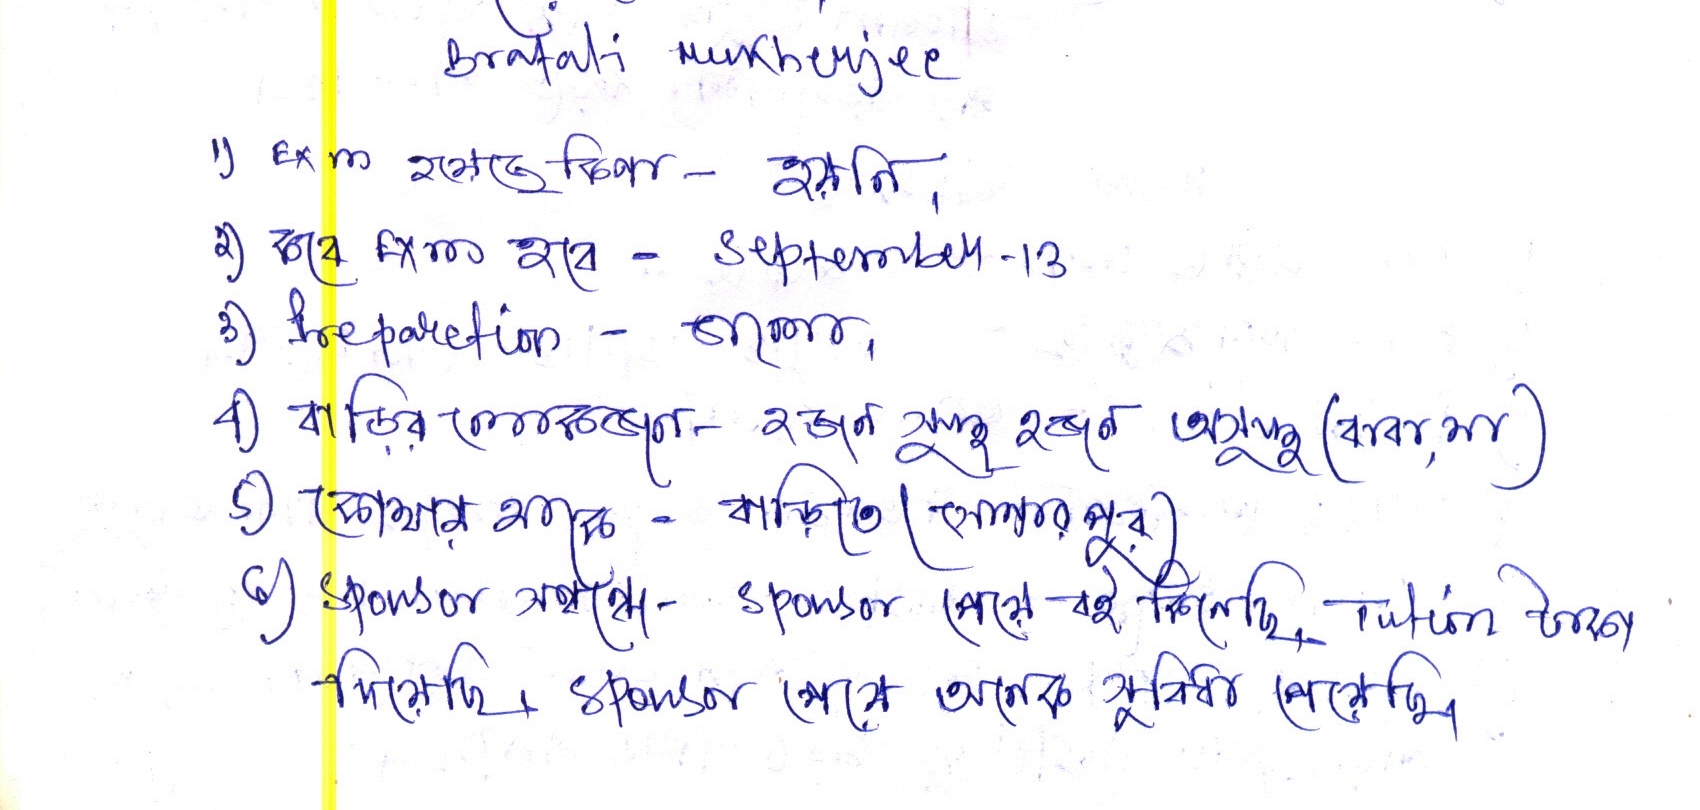 Bratati Mukherjee
১) Exam হয়েছে কিনা - হয়নি,
২) কবে Exam হবে - September-13
৩) Preparetion - ভালো,
৪) বাড়ির লোকজন - ২জন সুস্থ ২জন অসুস্থ (বাবা, মা)
৫) কোথায় থাকে - বাড়িতে (গোপালপুর)
৬) Sponsor সম্বন্ধে - Sponsor পেয়ে বই কিনেছি, Tution টাকা
দিয়েছি, Sponsor পেয়ে অনেক সুবিধা পেয়েছি,